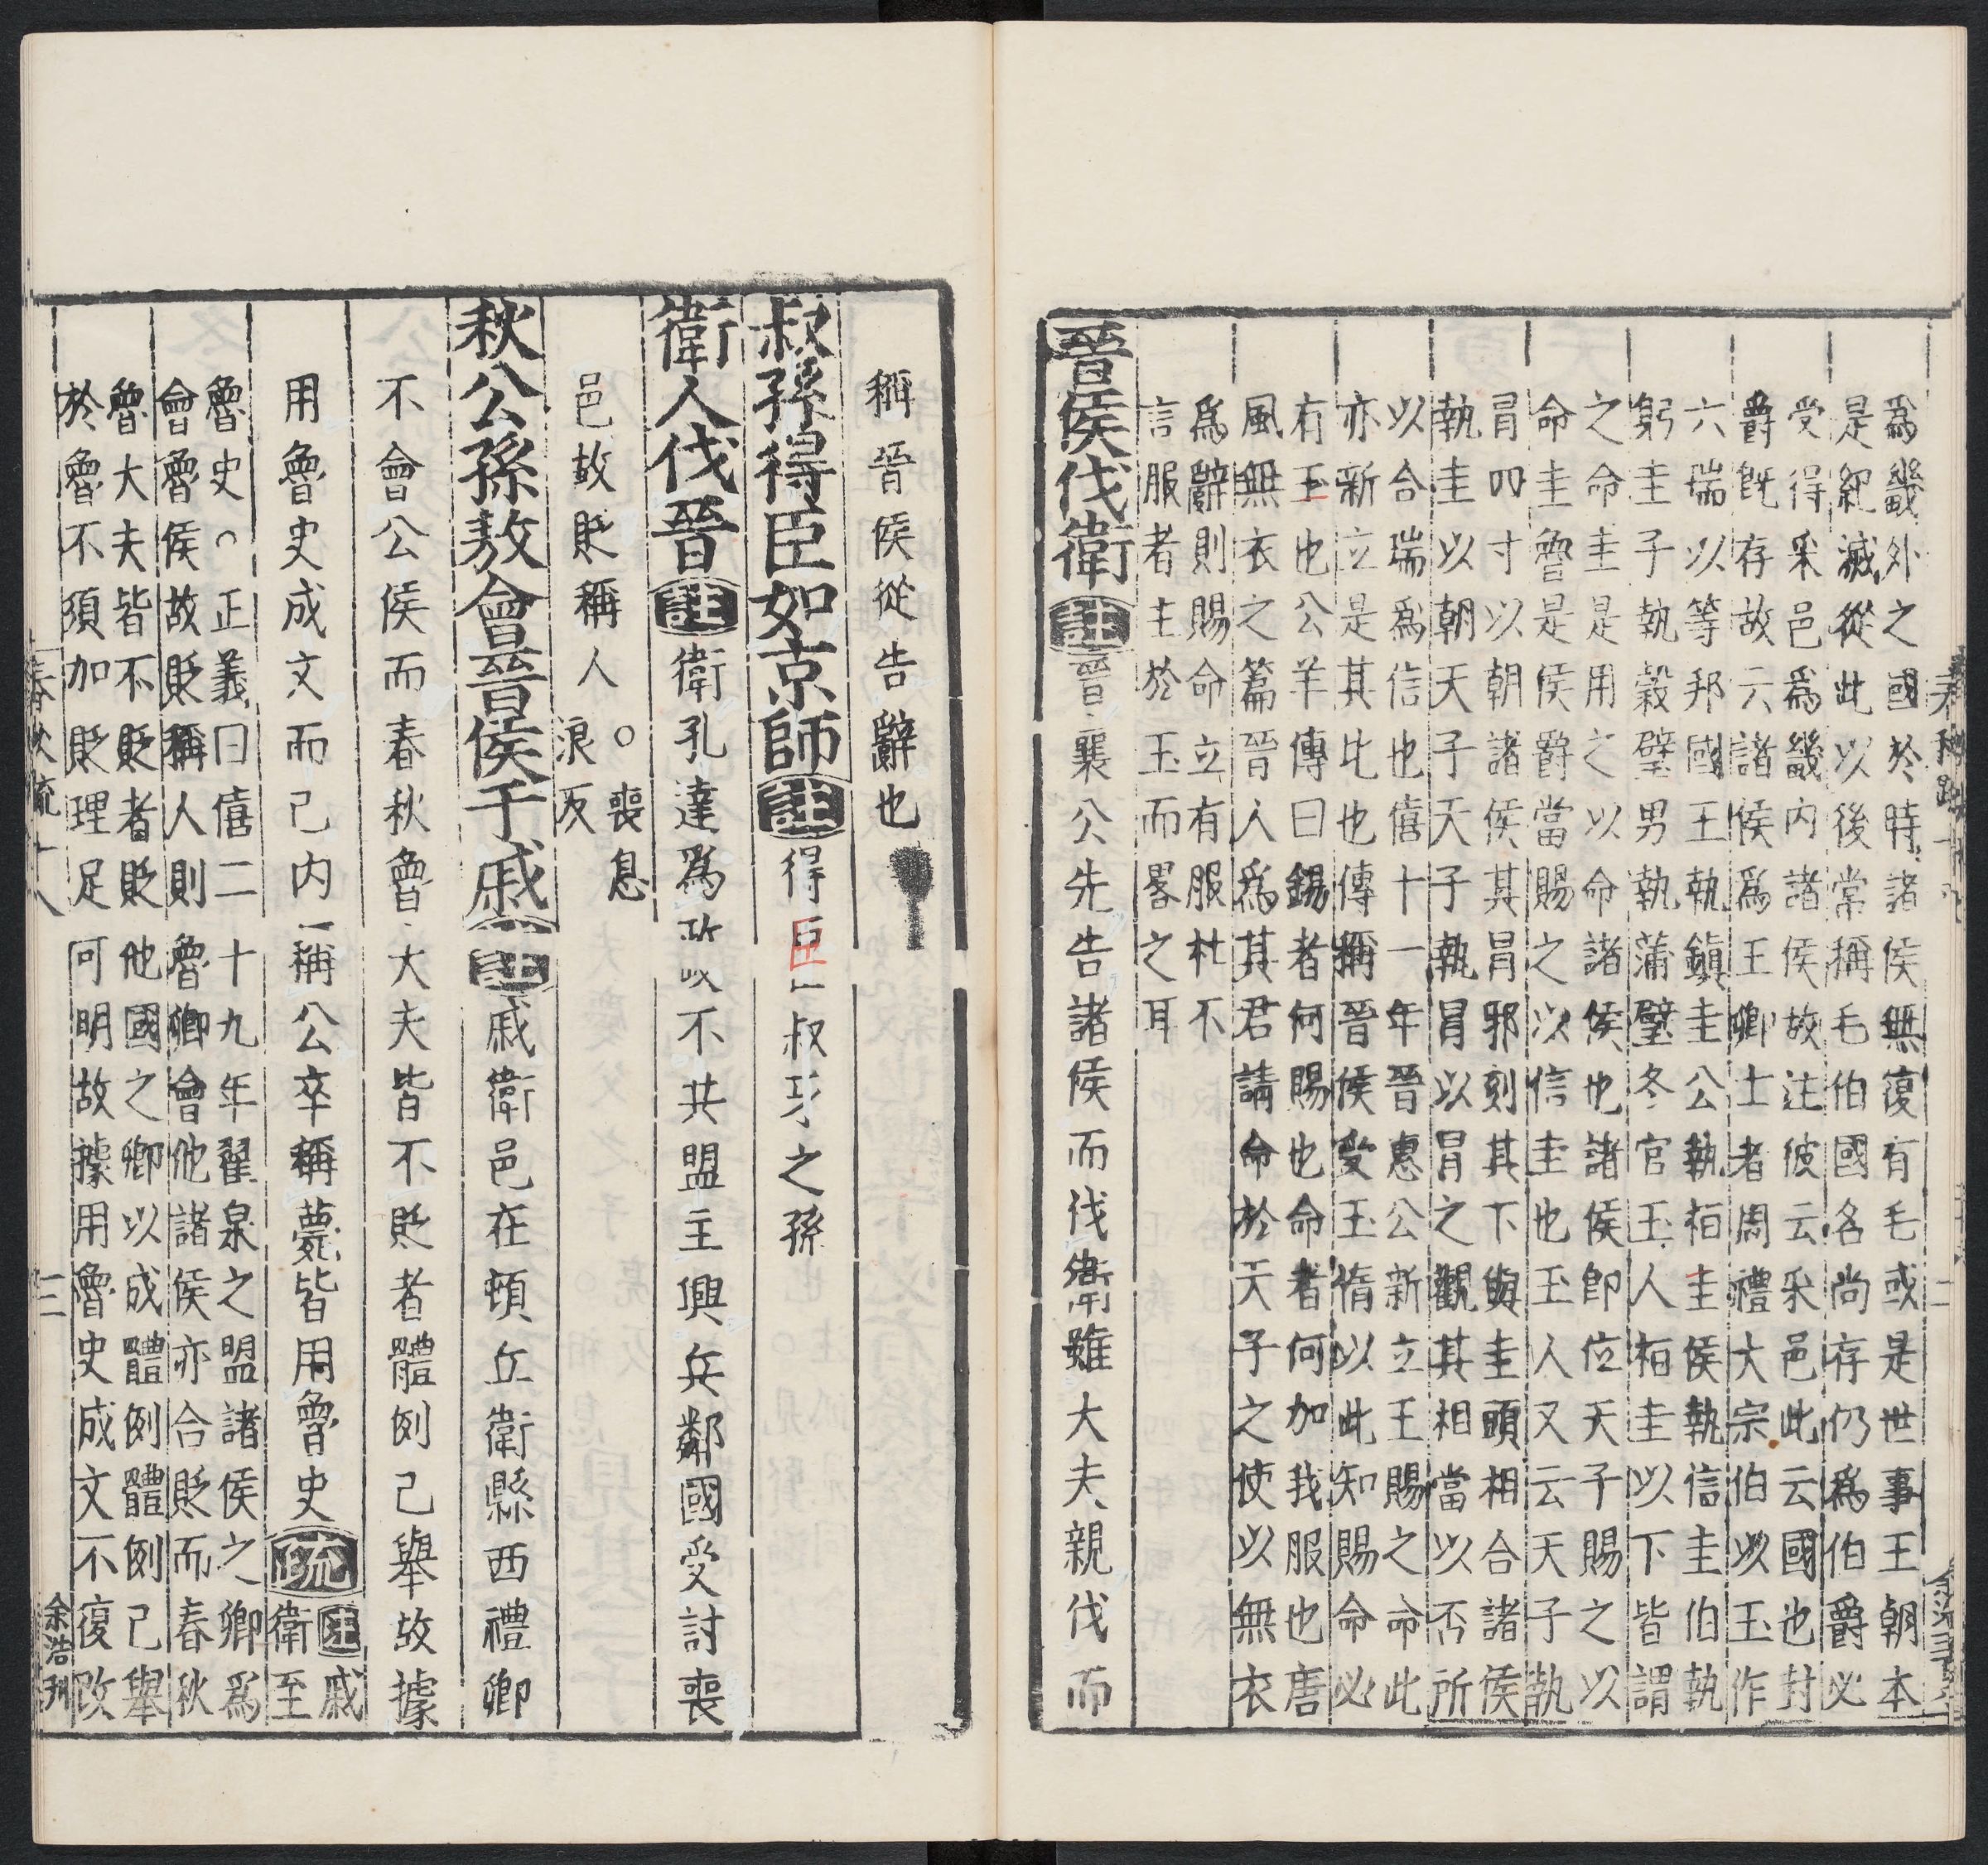 為畿外之國於時諸侯無復有毛或是世事王朝本
是絕滅從此以後常稱毛伯國名尚存仍為伯爵必
受得采邑為畿內諸侯故注彼云采邑此云國也封
爵旣存故云諸侯為王卿士者周禮大宗伯以玉作
六瑞以等邦國王執鎮圭公執桓圭侯執信圭伯執
躬圭子執穀璧男執蒲璧冬官玉人桓圭以下皆謂
之命圭是用之以命諸侯也諸侯即位天子賜之以
命圭魯是侯爵當賜之以信圭也玉人又云天子執
冐四寸以朝諸侯其冐邪刻其下與圭頭相合諸侯
執圭以朝天子天子執冐以冐之觀其相當以否所
以合瑞為信也僖十一年晉惠公新立王賜之命此
亦新立是其比也傳稱晉侯受玉惰以此知賜命必
有玉也公羊傳曰錫者何賜也命者何加我服也唐
風無衣之篇晉人為其君請命於天子之使以無衣
為辭則賜命立有服杜不
言服者主於玉而畧之耳
晉侯伐衛註晉襄公先告諸侯而伐衛雖大夫親伐而
稱晉侯從告辭也
叔孫得臣如京師註得臣叔牙之孫
衛人伐晉註衛孔達為政不共盟主興兵鄰國受討喪
邑故貶稱人○喪息
浪反
秋公孫敖會晉侯于戚註戚衛邑在頓丘衛縣西禮卿
不會公侯而春秋魯大夫皆不貶者體例已舉故據
用魯史成文而已內稱公卒稱薨皆用魯史疏註戚
衛至
魯史○正義曰僖二十九年翟泉之盟諸侯之卿為
會魯侯故貶稱人則魯卿會他諸侯亦合貶而春秋
魯大夫皆不貶者貶他國之卿以成體例體例已舉
於魯不須加貶理足可明故據用魯史成文不復改
春秋疏十八
三
余浩刊